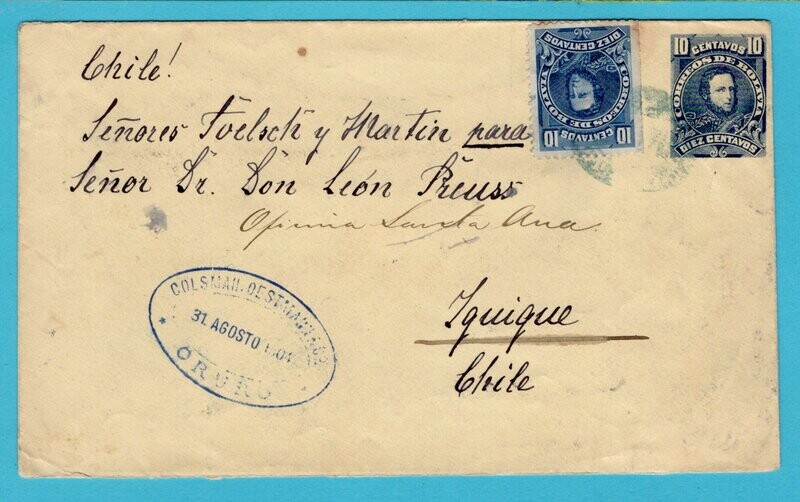 Chile!
Señores Foelsch y Martin para
Señor Dr. Don León Preuss
Oficina Santa Ana.
Iquique
Chile
10 CENTAVOS 10
CORREOS DE BOLIVIA
DIEZ CENTAVOS
10 CENTAVOS 10
CORREOS DE BOLIVIA
DIEZ CENTAVOS
COLSMAN,
31 AGOSTO
ORURO